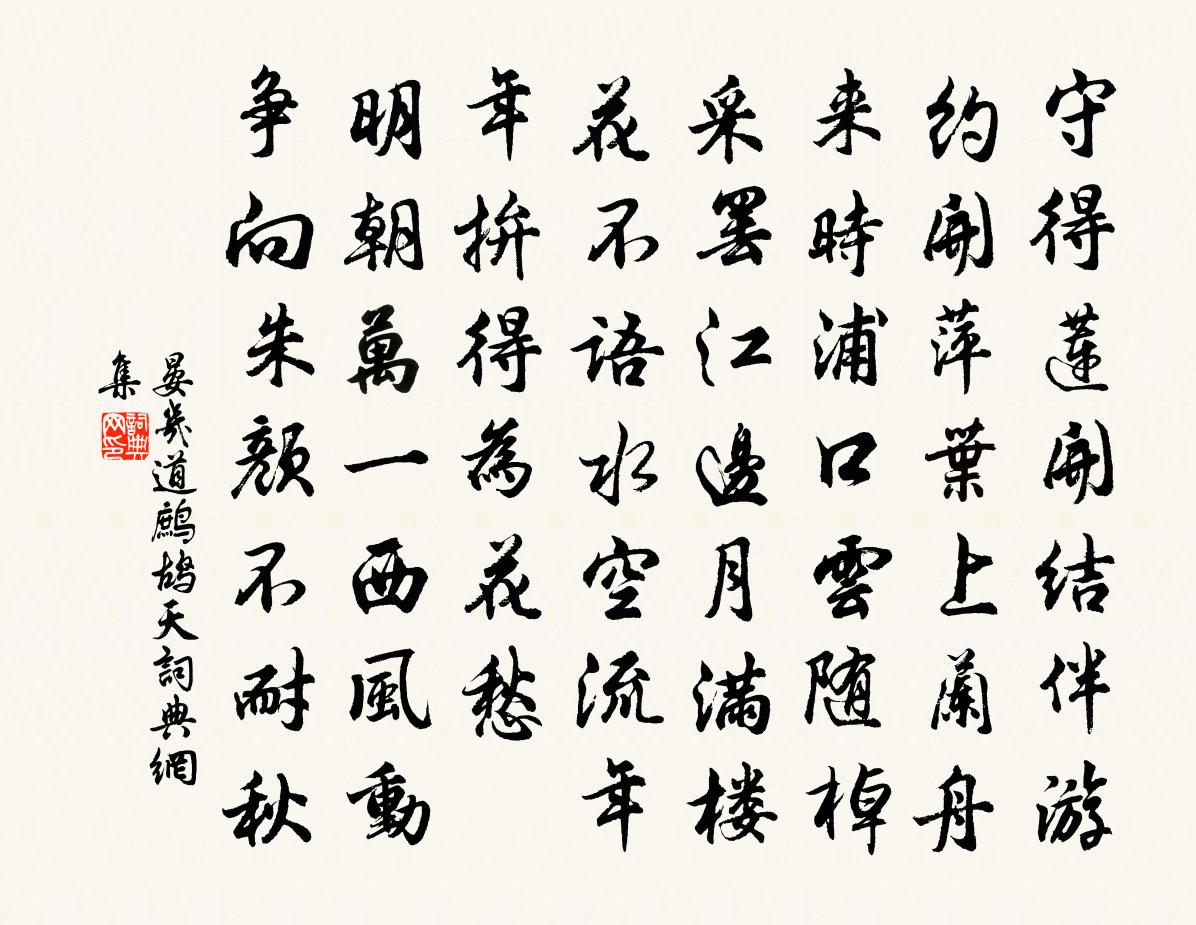 守得蓮開結伴游
約開萍葉上蘭舟
来時浦口雲随棹
采罢江邊月滿楼
花不語水空流年
年拚得為花愁
明朝萬一西風動
争向朱顔不耐秋
晏幾道鷓鴣天詞典網
集
詞典
网印